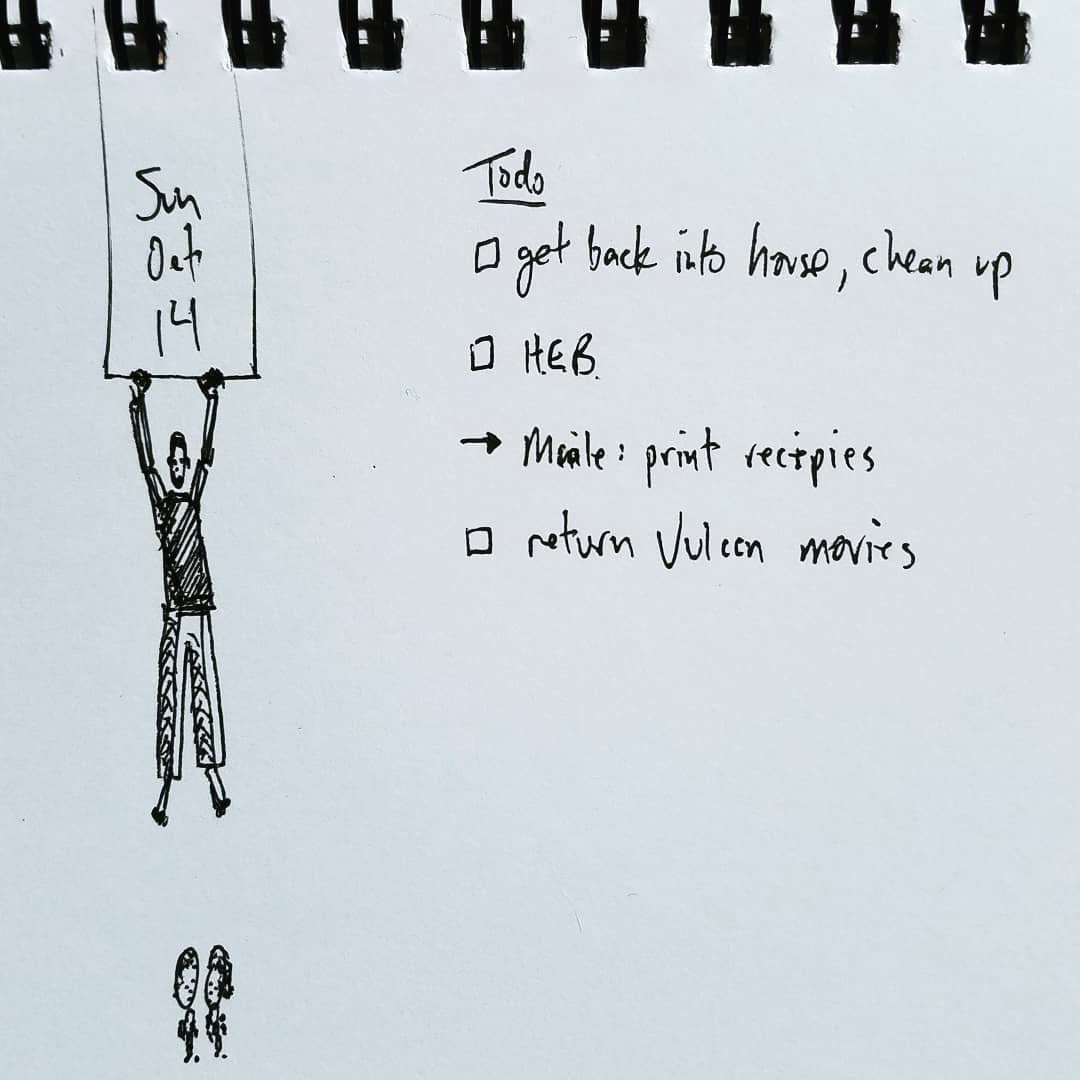 Sun
Oct
14
Todo
get back into house, clean up
HEB.
print recipies
return Vulcan movies